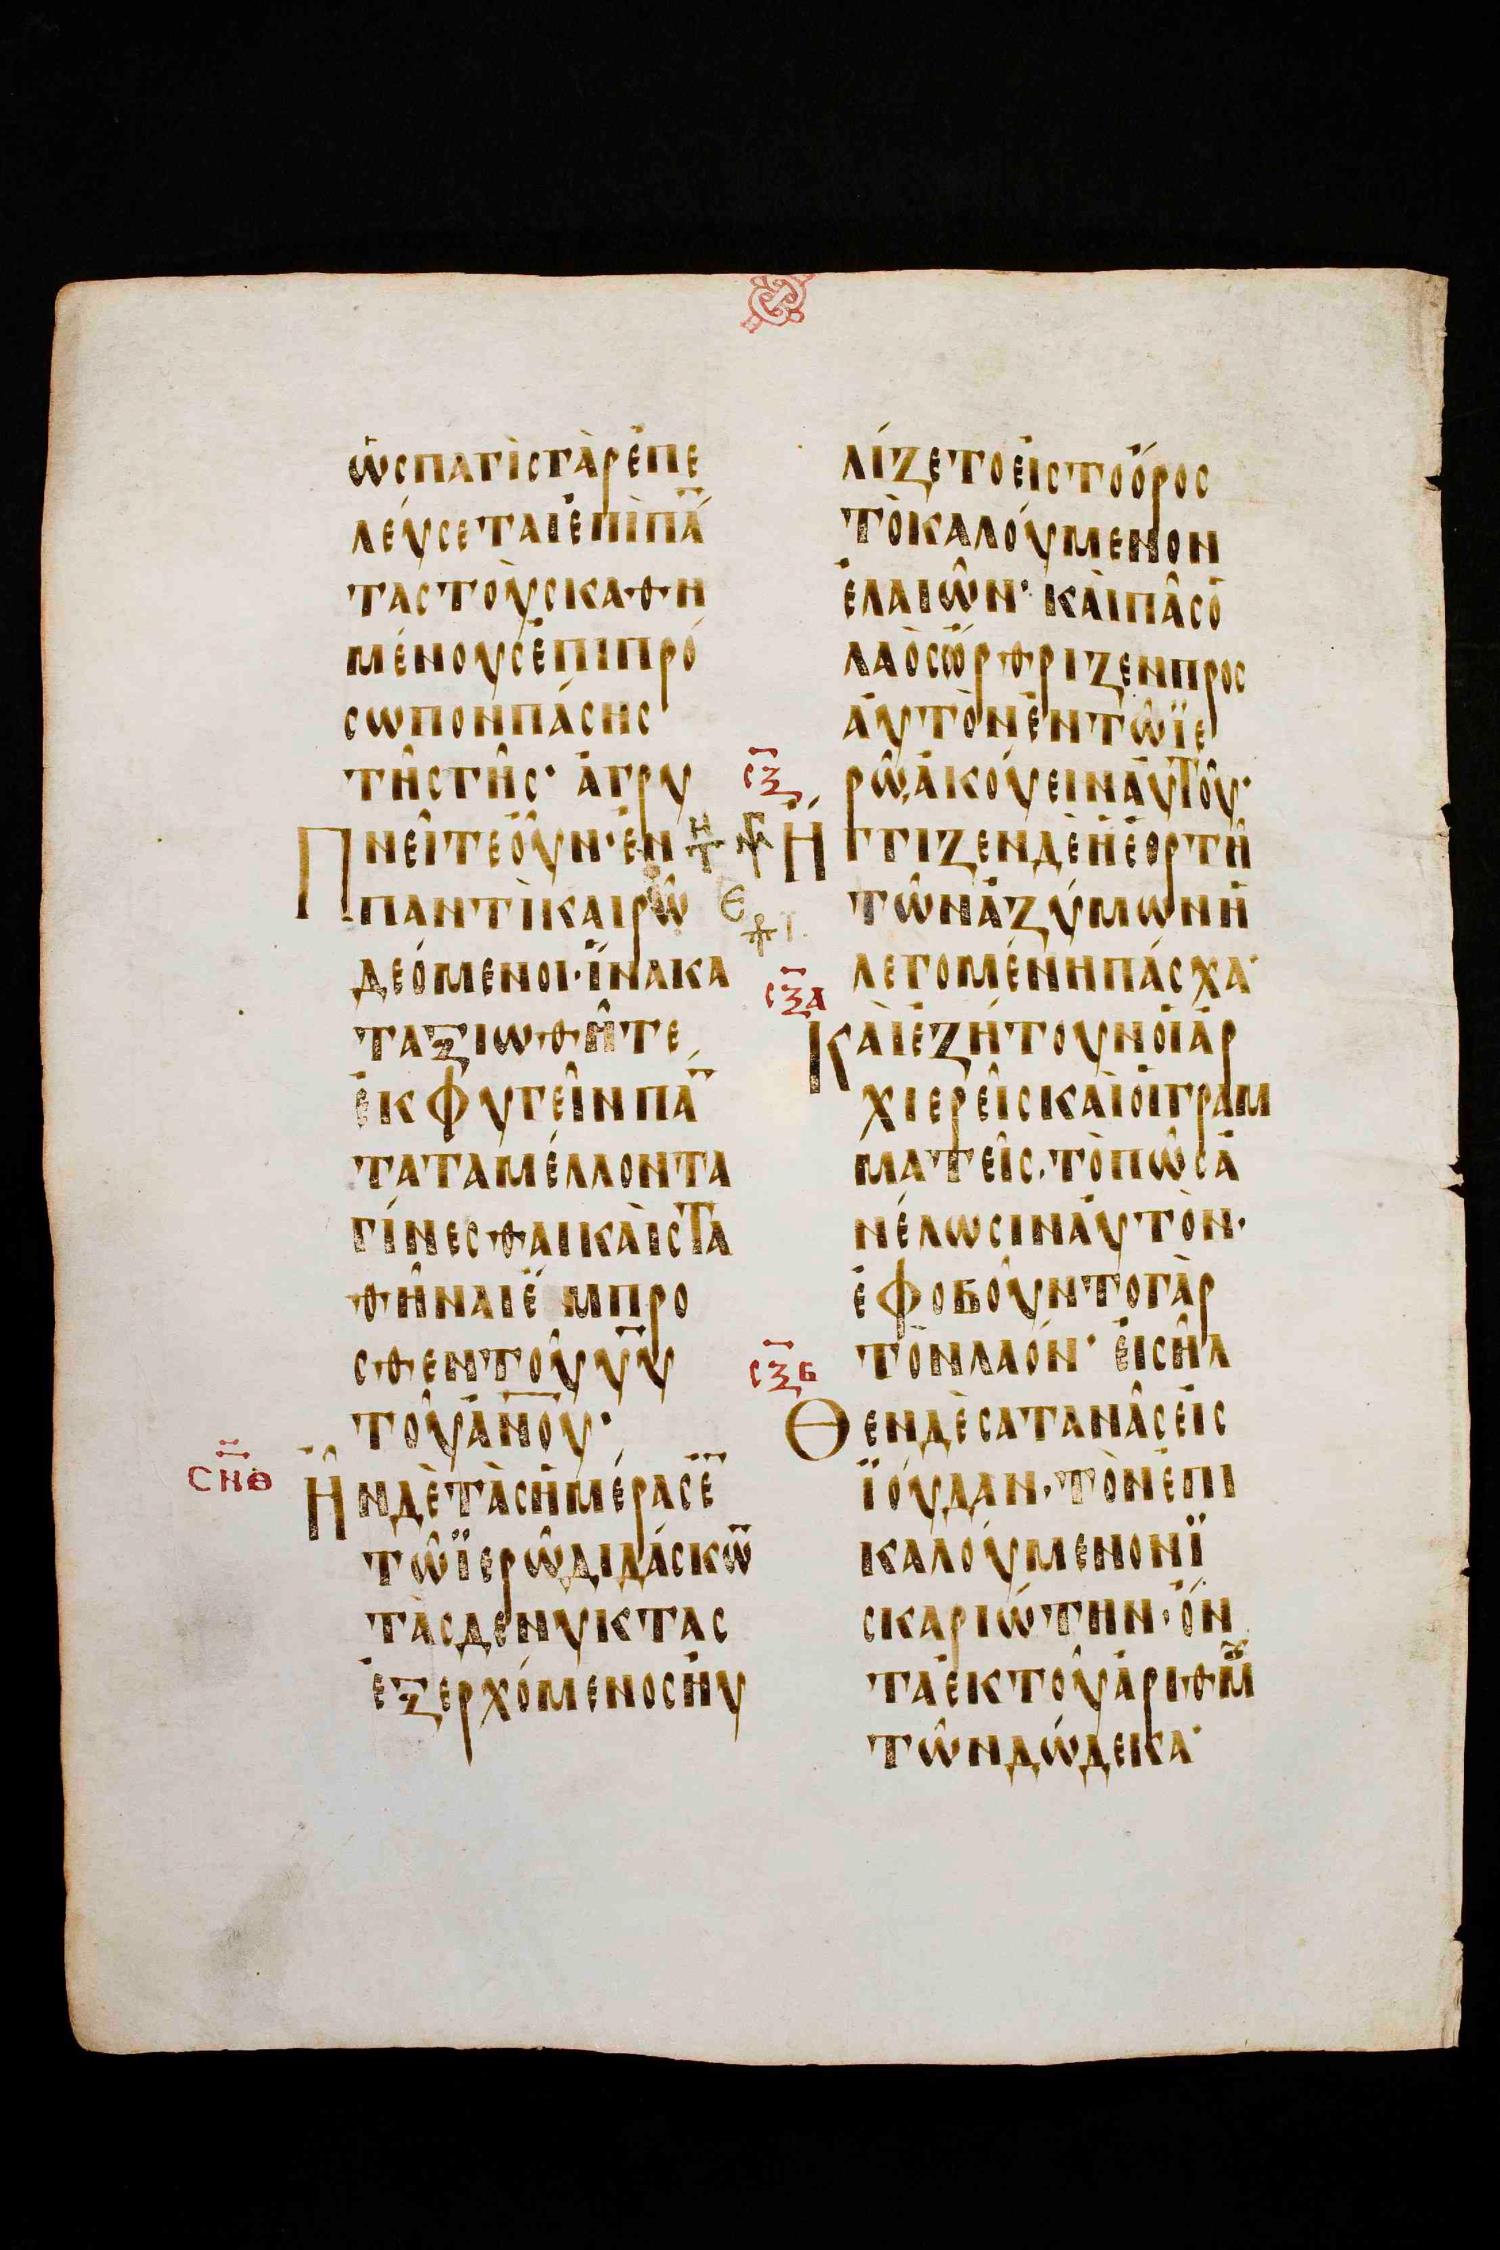 ὡσπαγὶςγὰρἐπε
λεύσεταιἐπὶπᾶ̅
ταςτοὺςκαθη
μένουςἐπιπρό
σωπονπάσης
τῆςγῆς· ἀγρυ
Πνεῖτεοὖν·ἐν
παντὶκαιρῶ
δεόμενοι·ἵνακα
ταξιωθῆτε
ἐκφυγεῖνπά̅
ταταμέλλοντα
γίνεσθαικαὶστα
θῆναιἔμπρο
σθεντοῦυ̅υ̅
τοῦἀ̅ν̅ο̅υ·
ΣΝΘ
Ἦνδὲτὰςἡμέραςἐ̅
τῶϊερῶδιδάσκω̅
τὰςδενυκτας
ἐξερχόμενοςηυ
λίζετοεἰςτοὄρος
τὸκαλούμενον
ἐλαιῶν· καὶπᾶςὁ
λαὸςὤρθριζενπρος
ἀυτὸνἐντῶϊε
ρῶ,ἀκούειναὐτοῦ·
ΣΞ
Ἤγγιζενδὲἡἑορτὴ
τῶνἀζύμωνἡ
λεγομένηπάσχα·
ΣΞΑ
Καὶἐζήτουνοἱἀρ
χιερεῖςκαὶοἱγραμ
ματεῖς·τὸπῶςἀ
νέλωσιναὐτὸν·
ἐφοβοῦντογὰρ
τὸνλαόν· εἰσῆλ
ΣΞΒ
Θενδὲσατανᾶςεἰς
ϊούδαν·τὸνἐπι
καλούμενονϊ
σκαριώτην·ὄν
ταἐκτοῦἀριθμ̅
τῶνδώδεκα·